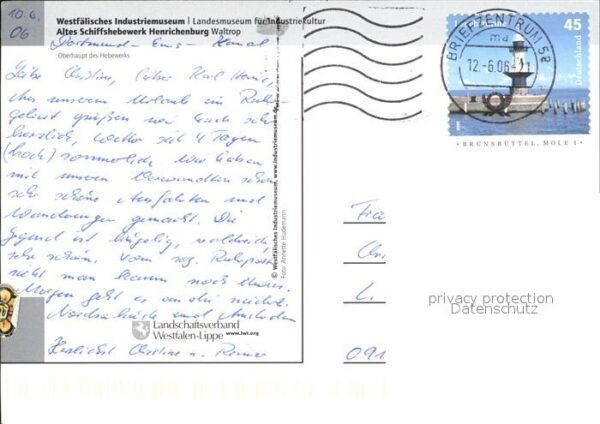 10.6.
06
Westfälisches Industriemuseum | Landesmuseum für Industriekultur
Altes Schiffshebewerk Henrichenburg Waltrop
Dortmund-Ems-Kanal
Oberhaupt des Hebewerks
Liebe Christine, lieber Karl Heinz,
von unserem Urlaub im Ruhr-
gebiet grüßen wir Euch sehr
herzlich, Wetter seit 4 Tagen
(hoch) sommerlich. Wir haben
mit unseren Verwandten schon
sehr schöne Ausfahrten und
Wanderungen gemacht. Die
Gegend ist hügelig, waldreich,
sehr schön. Vom sog. Ruhrpott
sieht man kaum noch etwas.
Morgen geht es an die
Nordseeküste und
Herzlichst Christine u. Reiner
Landschaftsverband
Westfalen-Lippe www.lwl.org
© Westfälisches Industriemuseum, www.industriemuseum.de
Foto: Annette Hudemann
BRIEFZENTRUM 58
ma
12.-6.06-21
45
Deutschland
BRUNSBÜTTEL, MOLE 1
Fa
Chr
L.
091
privacy protection
Datenschutz